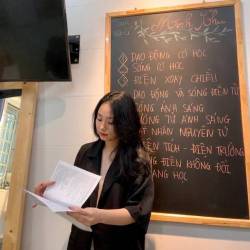 DAO ĐỘNG CƠ HỌC
SÓNG CƠ HỌC
ĐIỆN XOAY CHIỀU
DAO ĐỘNG VÀ SÓNG ĐIỆN TỪ
SÓNG ÁNH SÁNG
LƯỢNG TỬ ÁNH SÁNG
HẠT NHÂN NGUYÊN TỬ
ĐIỆN TÍCH - ĐIỆN TRƯỜNG
DÒNG ĐIỆN KHÔNG ĐỔI
QUANG HỌC